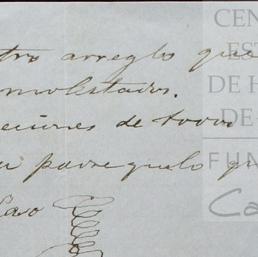 tro arreglo que
molestados.
ciones de todos
padre que lo q
CEN
EST
DE H
DE
FUN
Ca